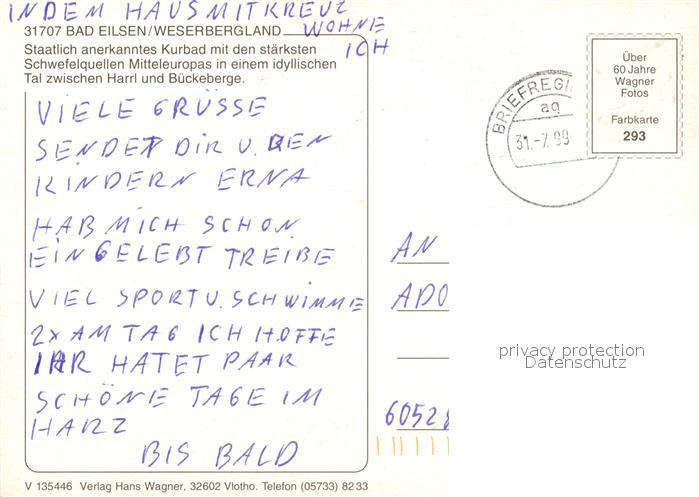 IN DEM HAUS MIT KREUZ
WOHNE
ICH
31707 BAD EILSEN/WESERBERGLAND
Staatlich anerkanntes Kurbad mit den stärksten
Schwefelquellen Mitteleuropas in einem idyllischen
Tal zwischen Harrl und Bückeberge.
VIELE GRÜSSE
SENDET DIR U. DEN
KINDERN ERNA
HAB MICH SCHON
EINGELEBT TREIBE
VIEL SPORT U. SCHWIMME
2x AM TAG ICH HOFFE
IHR HATET PAAR
SCHÖNE TAGE IM
HARZ
BIS BALD
Über
60 Jahre
Wagner
Fotos
Farbkarte
293
BRIEFREGI
ag
31.-7.99
AN
ADO
6052
privacy protection
Datenschutz
V 135446 Verlag Hans Wagner, 32602 Vlotho. Telefon (05733) 8233